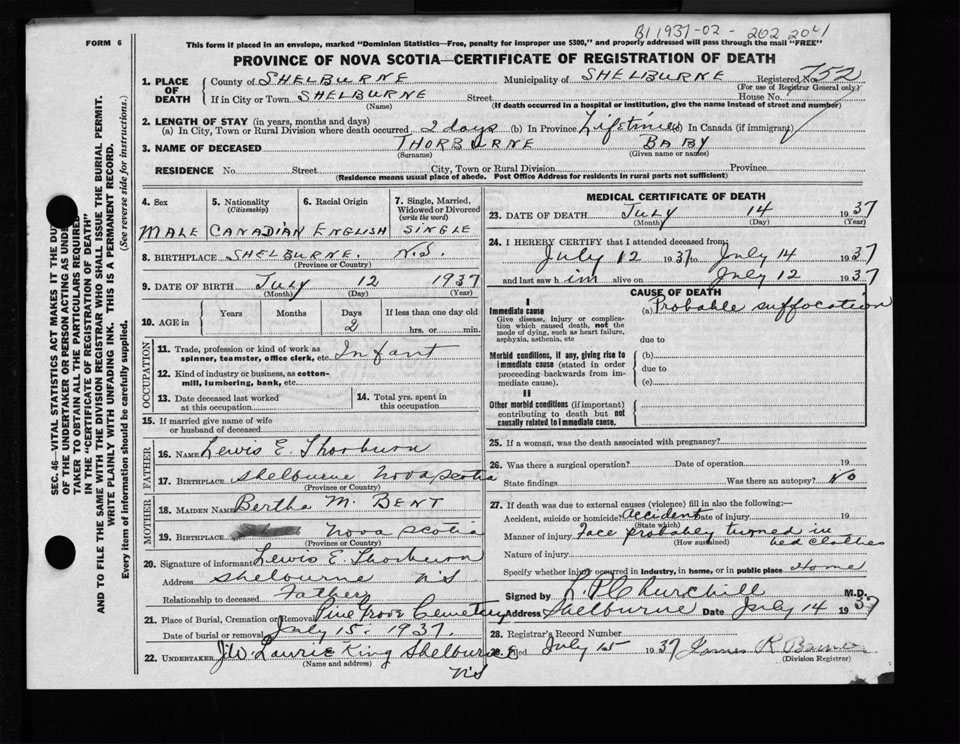 B11937-02-202204
FORM 6
This form if placed in an envelope, marked "Dominion Statistics—Free, penalty for improper use $300," and properly addressed will pass through the mail "FREE"
PROVINCE OF NOVA SCOTIA—CERTIFICATE OF REGISTRATION OF DEATH
1. PLACE OF DEATH County of SHELBURNE Municipality of SHELBURNE Registered No. 752
(For use of Registrar General only.)
If in City or Town SHELBURNE Street House No.
(Name) (If death occurred in a hospital or institution, give the name instead of street and number)
2. LENGTH OF STAY (in years, months and days)
(a) In City, Town or Rural Division where death occurred 2 days (b) In Province Lifetime (c) In Canada (if immigrant)
3. NAME OF DECEASED THORBURNE BABY
(Surname) (Given name or names)
RESIDENCE No. Street City, Town or Rural Division Province
(Residence means usual place of abode. Post Office Address for residents in rural parts not sufficient)
4. Sex 5. Nationality (Citizenship) 6. Racial Origin 7. Single, Married, Widowed or Divorced (write the word)
MALE CANADIAN ENGLISH SINGLE
8. BIRTHPLACE SHELBURNE. N.S.
(Province or Country)
9. DATE OF BIRTH JULY 12 1937
(Month) (Day) (Year)
10. AGE in Years Months Days If less than one day old
2 hrs. or min.
OCCUPATION
11. Trade, profession or kind of work as spinner, teamster, office clerk, etc. Infant
12. Kind of industry or business, as cotton-mill, lumbering, bank, etc.
13. Date deceased last worked at this occupation
14. Total yrs. spent in this occupation
15. If married give name of wife or husband of deceased
FATHER
16. NAME Lewis E. Thorburn
17. BIRTHPLACE Shelburne Nova Scotia
(Province or Country)
MOTHER
18. MAIDEN NAME Bertha M. BENT
19. BIRTHPLACE Nova Scotia
(Province or Country)
20. Signature of informant Lewis E. Thorburn
Address Shelburne N.S
Relationship to deceased Father
21. Place of Burial, Cremation or Removal Pine Grove Cemetery
Date of burial or removal July 15. 1937.
22. UNDERTAKER J.W. Laurie King Shelburne
(Name and address) N.S
MEDICAL CERTIFICATE OF DEATH
23. DATE OF DEATH JULY 14 1937
(Month) (Day) (Year)
24. I HEREBY CERTIFY that I attended deceased from:
July 12 1937 to July 14 1937
and last saw him alive on July 12 1937
CAUSE OF DEATH
I
Immediate cause (a) Probable suffocation
Give disease, injury or complication which caused death, not the mode of dying, such as heart failure, asphyxia, asthenia, etc
due to
Morbid conditions, if any, giving rise to immediate cause (stated in order proceeding backwards from immediate cause).
(b)
due to
(c)
II
Other morbid conditions (if important) contributing to death but not causally related to immediate cause.
25. If a woman, was the death associated with pregnancy?
26. Was there a surgical operation? Date of operation 19
State findings Was there an autopsy? No
27. If death was due to external causes (violence) fill in also the following:—
Accident, suicide or homicide? Accident Date of injury 19
(State which)
Manner of injury Face probably turned in bed clothes
(How sustained)
Nature of injury
Specify whether injury occurred in industry, in home, or in public place Home
Signed by L.P. Churchill M.D.
Address Shelburne Date July 14 1937
28. Registrar's Record Number
Filed July 15 1937 James R
(Division Registrar)
SEC. 46—VITAL STATISTICS ACT MAKES IT THE DUTY
OF THE UNDERTAKER OR PERSON ACTING AS UNDERTAKER TO OBTAIN ALL THE PARTICULARS REQUIRED
IN THE "CERTIFICATE OF REGISTRATION OF DEATH"
AND TO FILE THE SAME WITH THE DIVISION REGISTRAR WHO SHALL ISSUE THE BURIAL PERMIT.
WRITE PLAINLY WITH UNFADING INK. THIS IS A PERMANENT RECORD.
Every item of information should be carefully supplied. (See reverse side for instructions.)